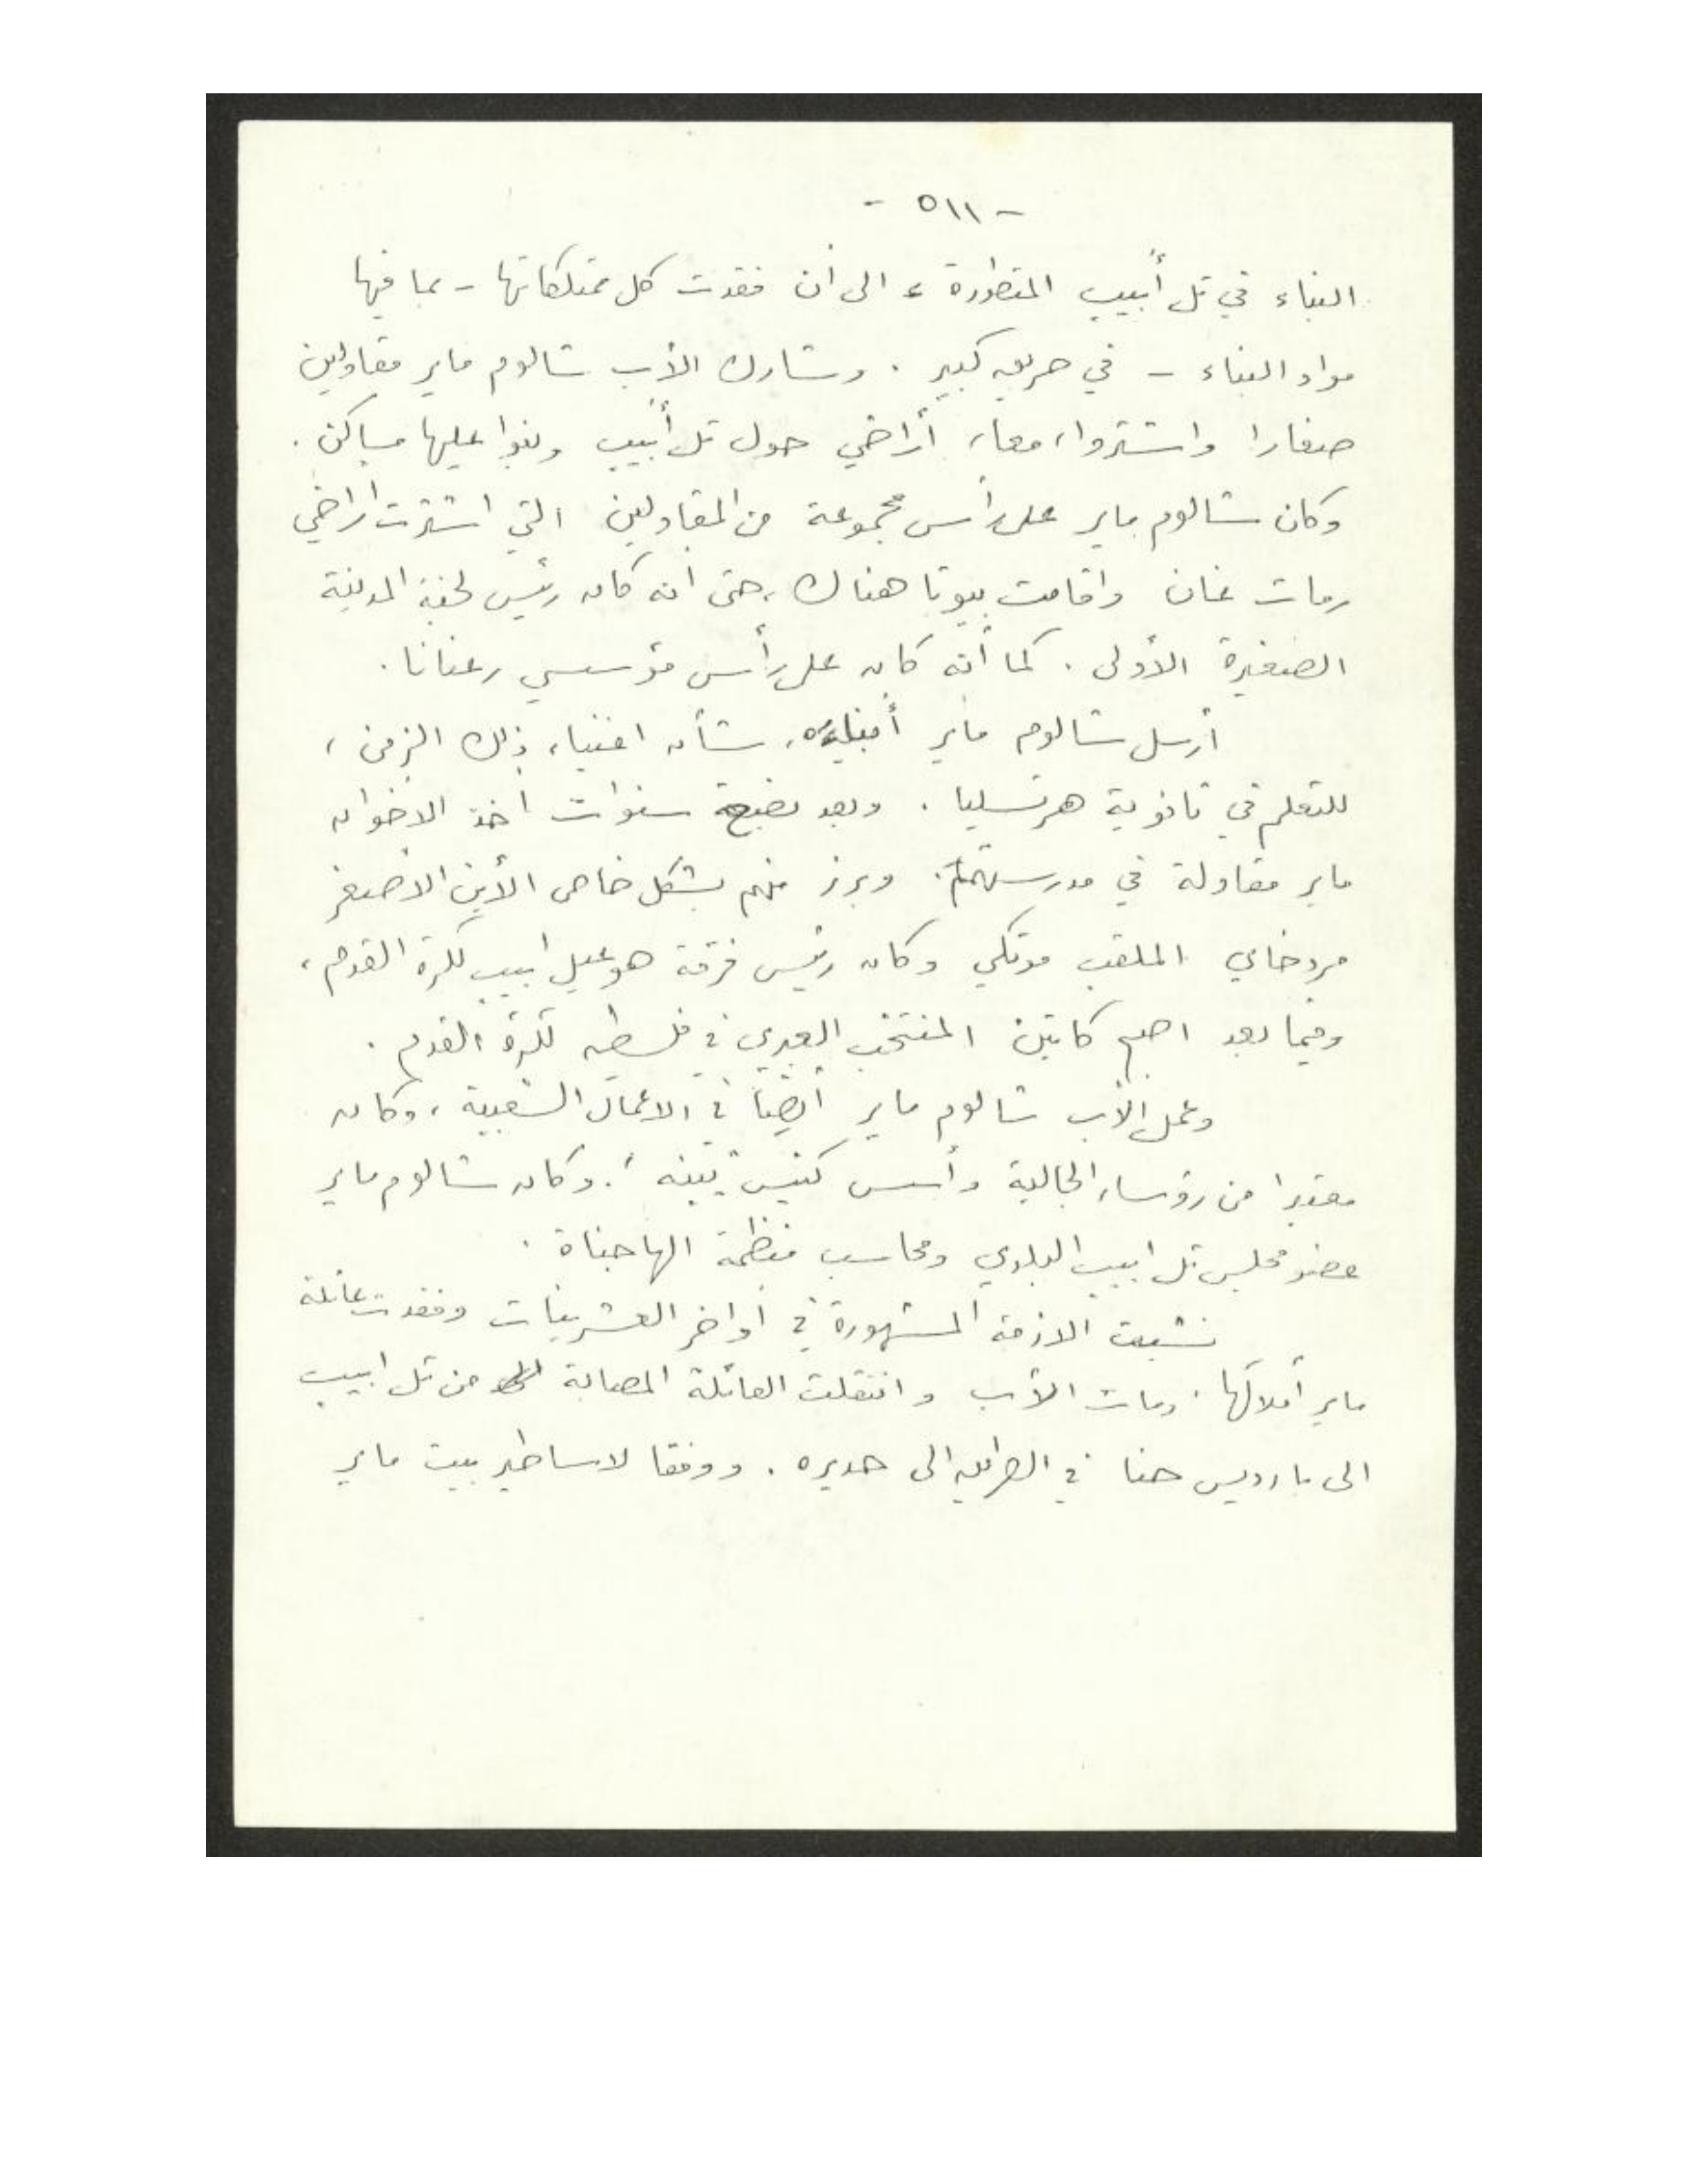 - ٥١١ -
البناء في تل أبيب المتطورة، الى أن فقدت كل ممتلكاتها - بما فيها
مواد البناء - في حريق كبير. وشارك الأب شالوم ماير مقاولين
صغارا واشتروا، معا، أراضي حول تل أبيب وبنوا عليها مساكن.
وكان شالوم ماير على رأس مجموعة من المقاولين التي اشترت أراضي
رمات غان واقامت بيوتا هناك، حتى انه كان رئيس لجنة المدينة
الصغيرة الأولى. كما أنه كان على رأس مؤسسي رعنانا.
أرسل شالوم ماير أبناءه، شأن اغنياء ذلك الزمن،
للتعلم في ثانوية هرتسليا. وبعد بضعة سنوات أخذ الاخوان
ماير مقاولة في مدرستهم. وبرز منهم بشكل خاص الأبن الاصغر
مردخاي الملقب موتكي وكان رئيس فرقة هوعيل ابيب لكرة القدم،
وفيما بعد اصبح كابتن المنتخب العبري في فلسطين لكرة القدم.
وعمل الأب شالوم ماير أيضاً في الاعمال الشعبية، وكان
معتبرا من رؤساء الجالية وأسس كنيس "يبنه". وكان شالوم ماير
عضو مجلس تل ابيب البلدي ومحاسب منظمة الهاجناة.
نشبت الازمة المشهورة في أواخر العشرينات وفقدت عائلة
ماير أملاكها. ومات الأب وانتقلت العائلة المصابة من تل ابيب
الى باردیس حنا في الطريق الى حديره. ووفقا لاساطير بيت ماير